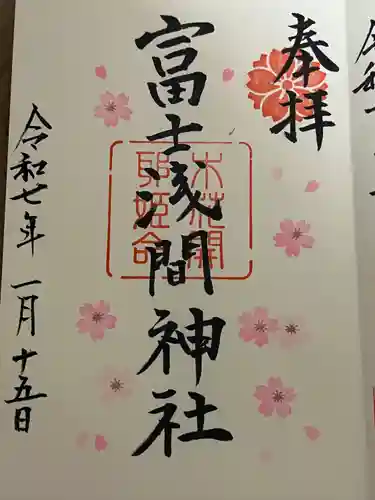 奉拝
富士浅間神社
木花開
耶姫命
令和七年 一月十五日